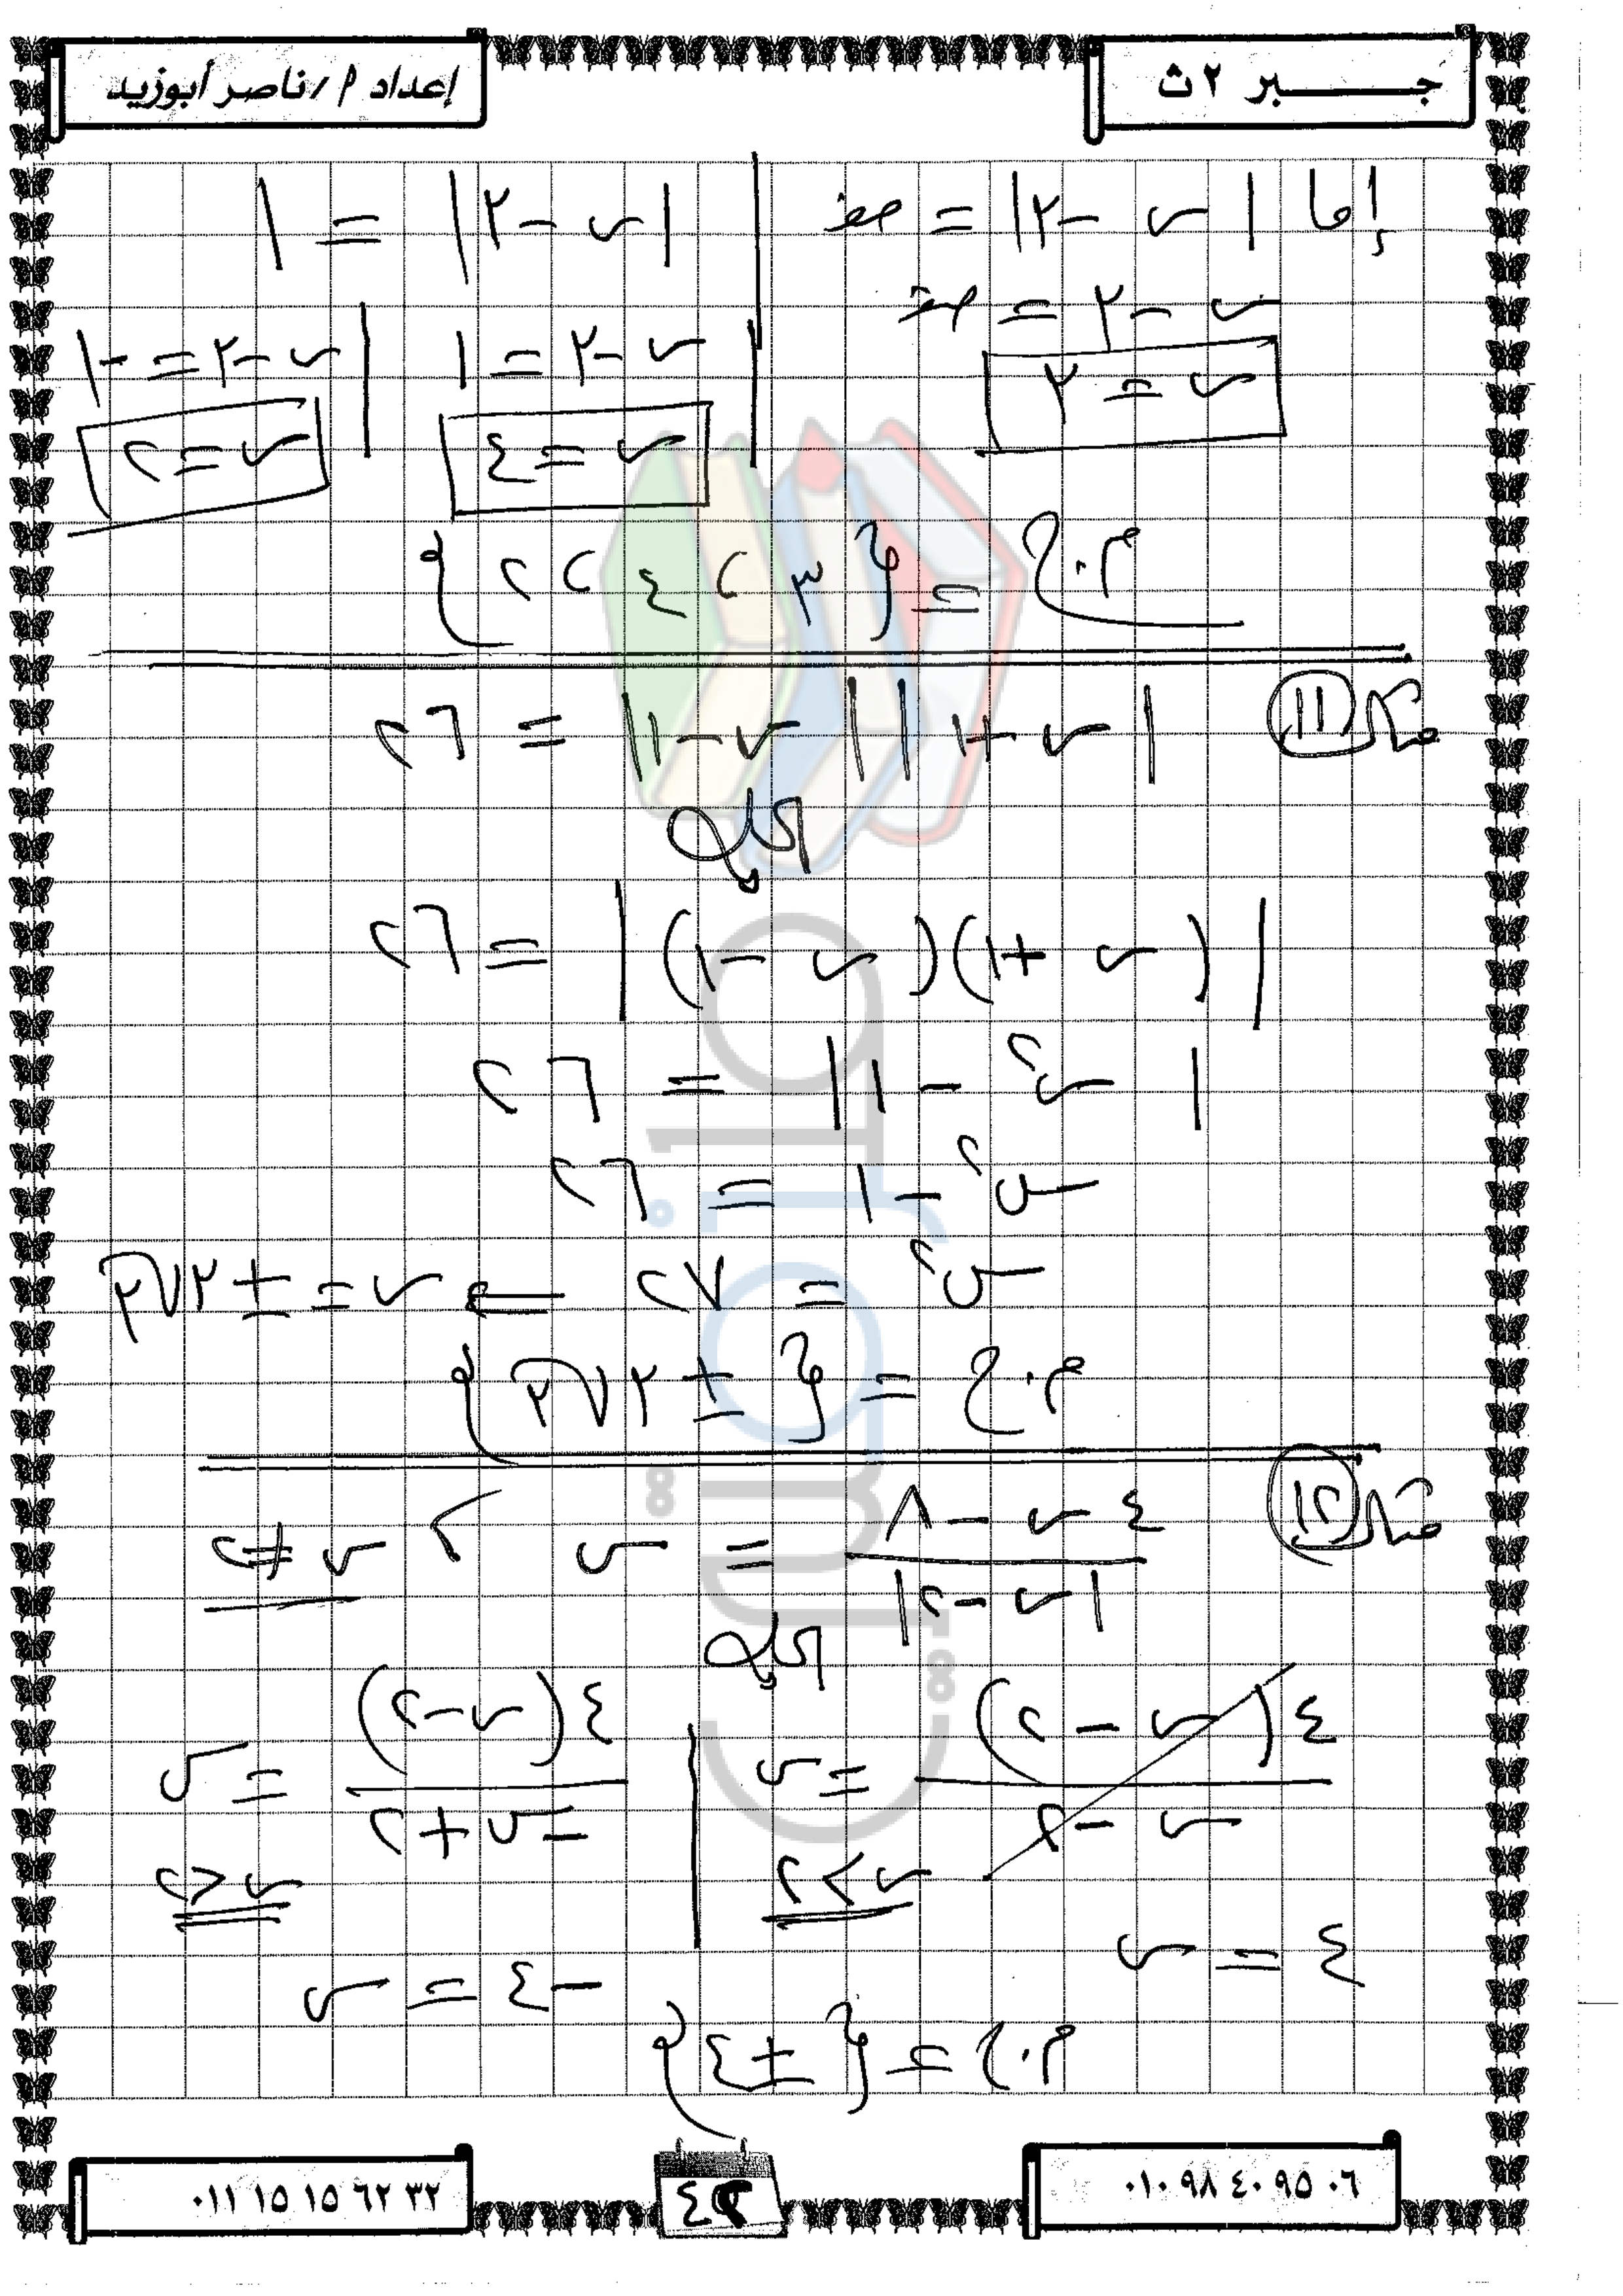 جبر ٢ ث
إعداد م / ناصر أبوزيد
إما | س - ٣ | = صفر
| س - ٣ | = ١
س - ٣ = صفر
س - ٣ = ١
س - ٣ = - ١
س = ٣
س = ٤
س = ٢
م.ح = { ٣ ، ٤ ، ٢ }
مثال ١١
| س + ١ | | س - ١ | = ٢٦
الحل
| ( س + ١ ) ( س - ١ ) | = ٢٦
| س٢ - ١ | = ٢٦
س٢ - ١ = ٢٦
س٢ = ٢٧ ⇐ س = ± ٣√٣
م.ح = { ± ٣√٣ }
مثال ١٢
٤ س - ٨ / | س - ٢ | = س ، س ≠ ٢
الحل
٤ ( س - ٢ ) / س - ٢ = س
٤ ( س - ٢ ) / - س + ٢ = س
س > ٢
س < ٢
٤ = س
- ٤ = س
م.ح = { ± ٤ }
٠١٠ ٩٨ ٤٠ ٩٥ ٠٦
٠١١ ١٥ ١٥ ٦٢ ٣٢